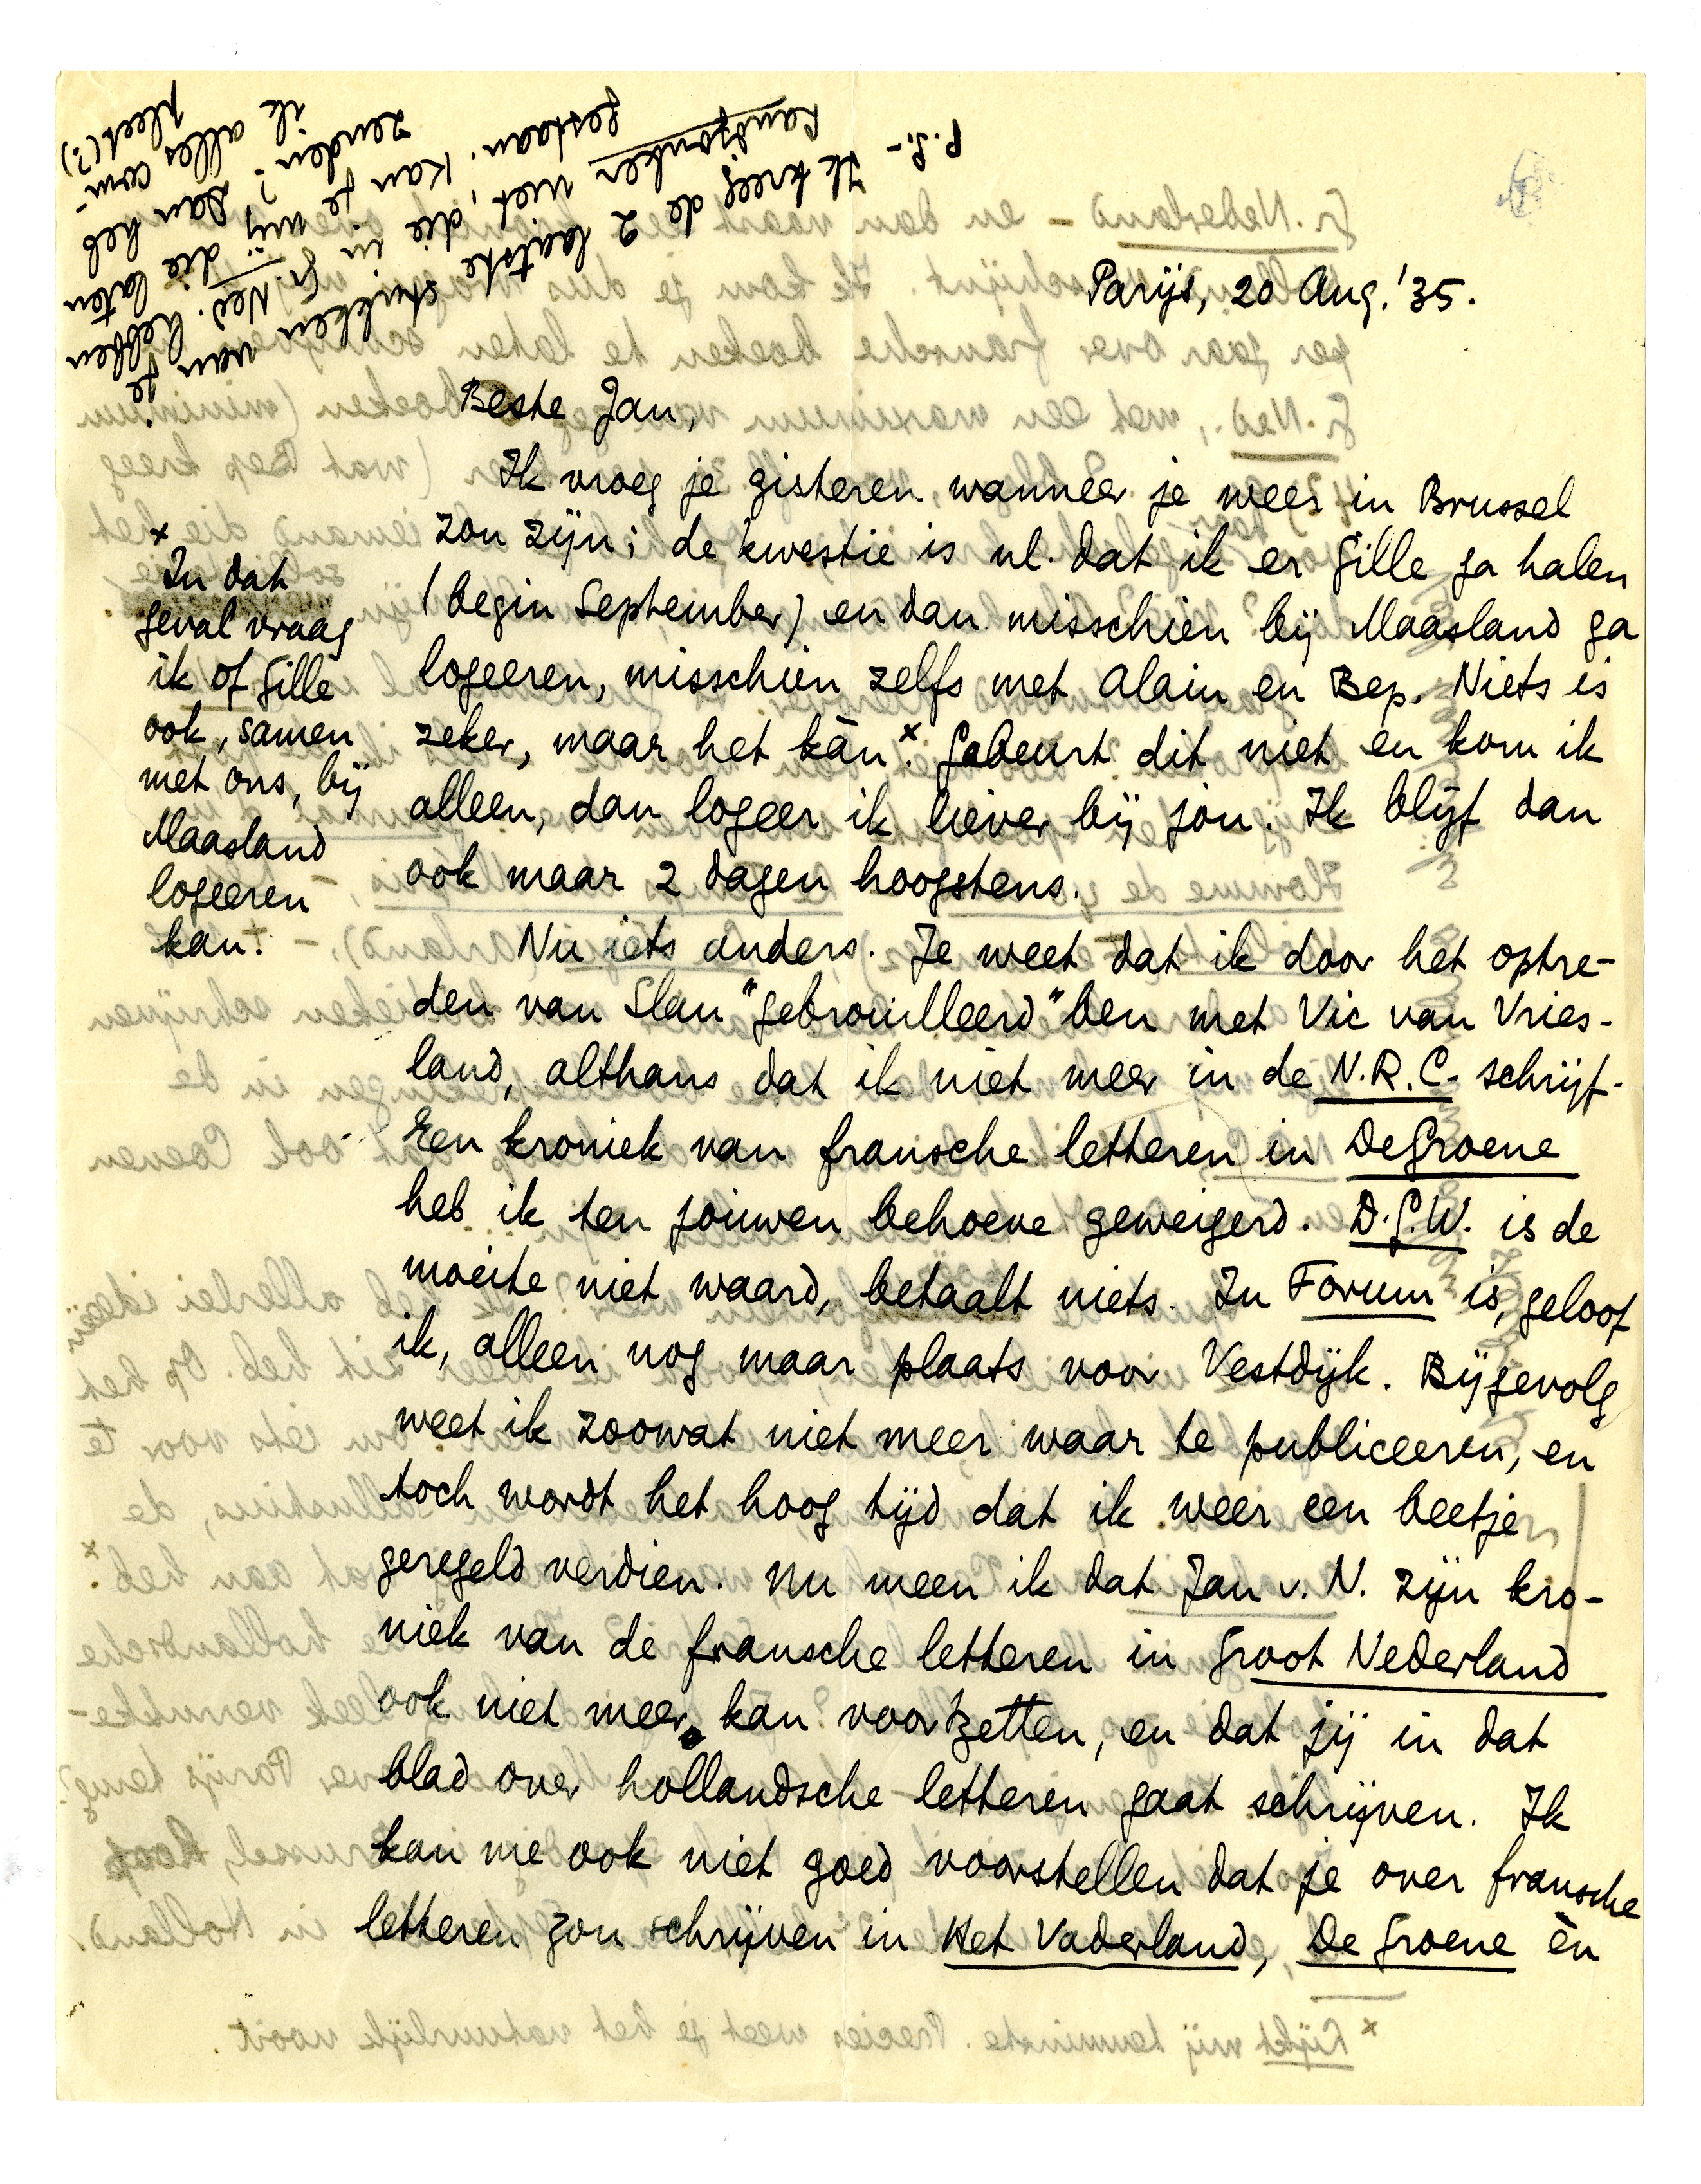 Parijs, 20 Aug. '35.
Beste Jan,
Ik vroeg je gisteren wanneer je weer in Brussel
zou zijn; de kwestie is nl. dat ik er Gille ga halen
(begin September) en dan misschien bij Maasland ga
logeeren, misschien zelfs met Alain en Bep. Niets is
zeker, maar het kàn.x Gebeurt dit niet en kom ik
alleen, dan logeer ik liever bij jou. Ik blijf dan
ook maar 2 dagen hoogstens.
Nu iets anders. Je weet dat ik door het optre-
den van Slau "gebrouilleerd" ben met Vic van Vries-
land, althans dat ik niet meer in de N.R.C. schrijf.
Een kroniek van fransche letteren in De Groene
heb ik ten jouwen behoeve geweigerd. D.G.W. is de
moeite niet waard, betaalt niets. In Forum is, geloof
ik, alleen nog maar plaats voor Vestdijk. Bijgevolg
weet ik zoowat niet meer waar te publiceeren, en
toch wordt het hoog tijd dat ik weer een beetje
geregeld verdien. Nu meen ik dat Jan v. N. zijn kro-
niek van de fransche letteren in Groot Nederland
ook niet meer kan voortzetten, en dat jij in dat
blad over hollandsche letteren gaat schrijven. Ik
kan me ook niet goed voorstellen dat je over fransche
letteren zou schrijven in Het Vaderland, De Groene èn
x
In dat
geval vraag
ik of Gille
ook, samen
met ons, bij
Maasland
logeeren
kan.
P.S. –
Ik kreeg de 2 laatste stukken van je
Landjonker niet, die in Gr. Ned. hebben
gestaan. Kan je mij die laten
zenden? Dan heb
ik alles com-
pleet (?)